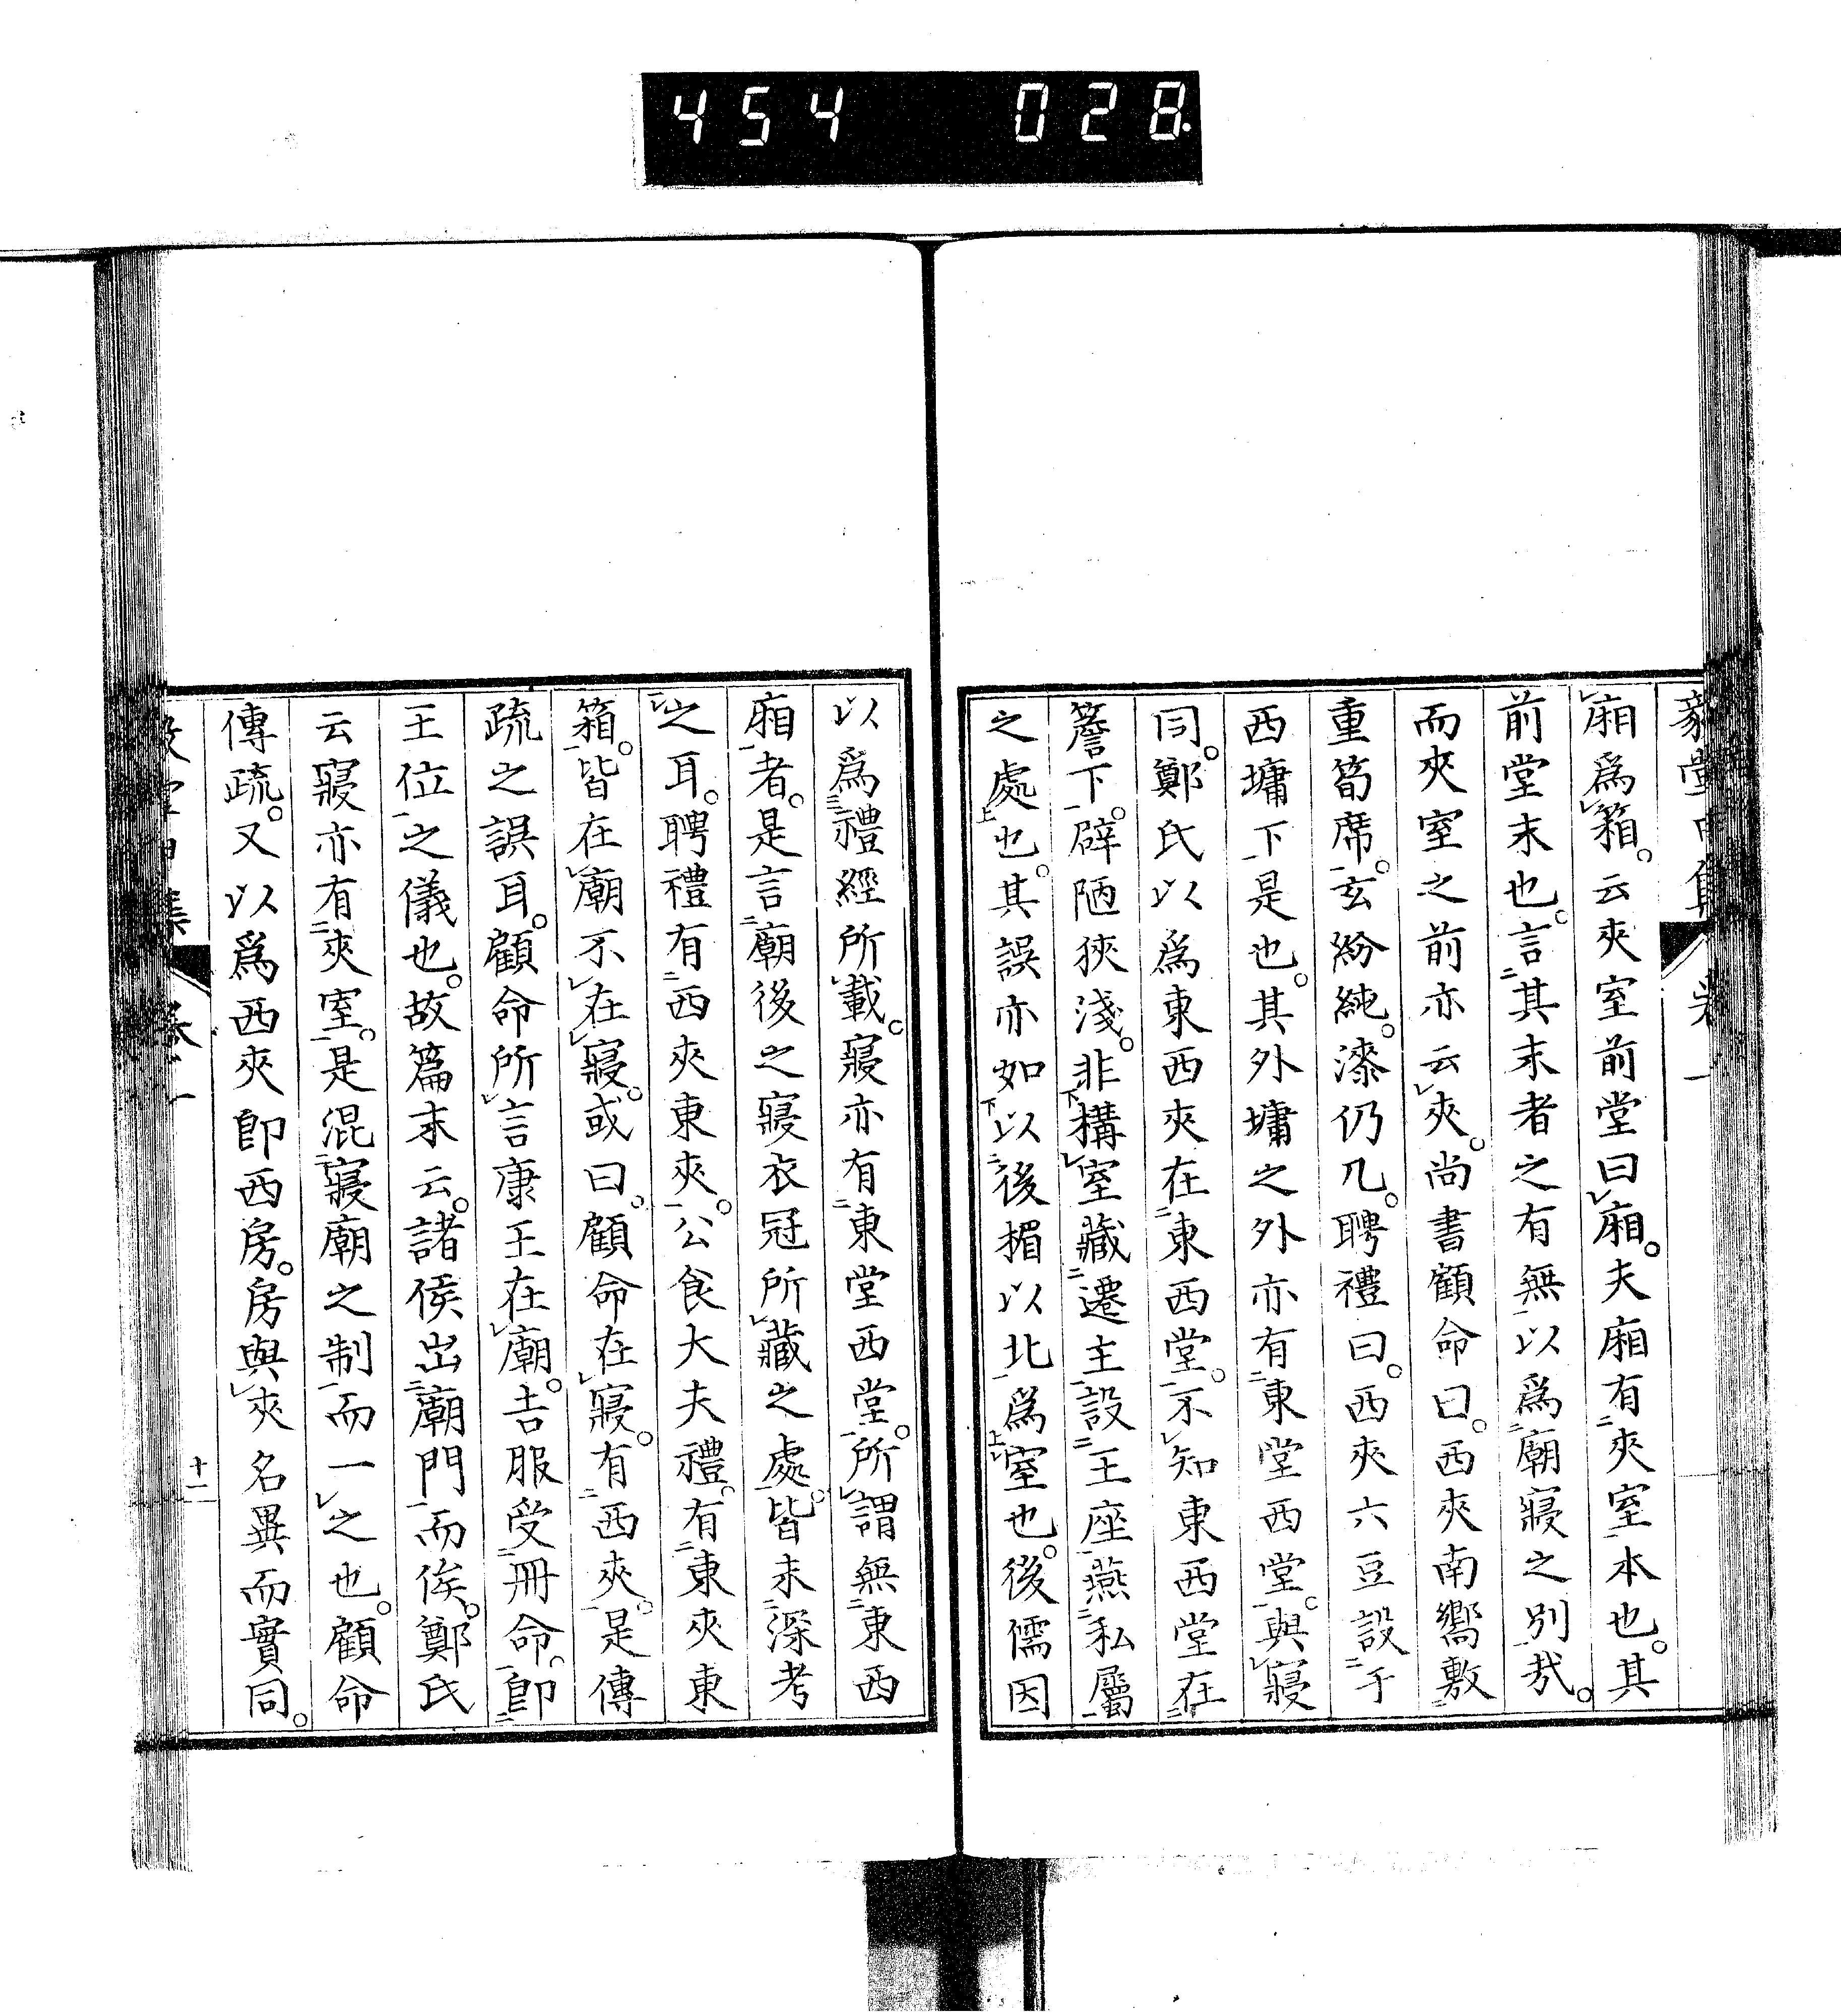 454 028
廂爲箱。云夾室前堂曰廂。夫廂有夾室本也。其
前堂末也。言其末者之有無以爲廟寢之別㢤。
而夾室之前亦云夾。尚書顧命曰。西夾南嚮敷
重筍席。玄紛純。漆仍几。聘禮曰。西夾六豆設于
西墉下是也。其外墉之外亦有東堂西堂。與寢
同。鄭氏以爲東西夾在東西堂。不知東西堂在
簷下。辟陋狹淺。非構室藏遷主設王座燕私屬
之處也。其誤亦如以後楣以北爲室也。後儒因
以爲禮經所載。寢亦有東堂西堂。所謂無東西
廂者。是言廟後之寢衣冠所藏之處。皆未深考
之耳。聘禮有西夾東夾。公食大夫禮。有東夾東
箱。皆在廟不在寢。或曰。顧命在寢。有西夾。是傳
疏之誤耳。顧命所言康王在廟。吉服受冊命。卽
王位之儀也。故篇末云。諸侯出廟門而俟。鄭氏
云寢亦有夾室。是混寢廟之制而一之也。顧命
傳疏。又以爲西夾卽西房。房與夾名異而實同。
十一